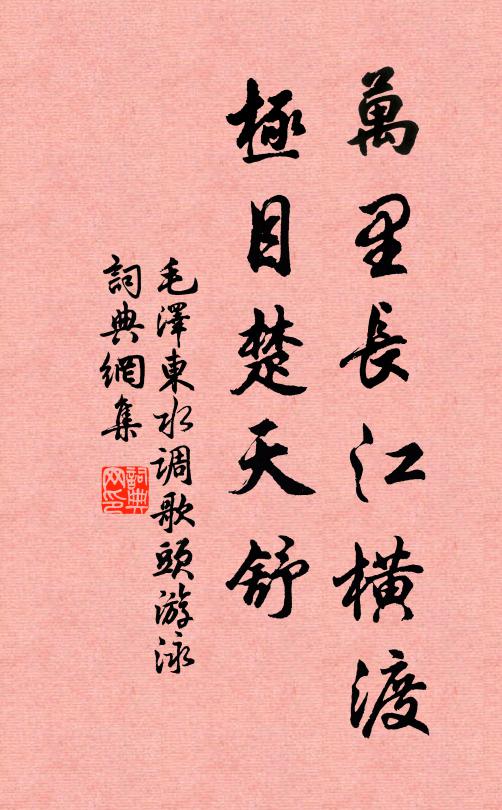 萬里長江橫渡
極目楚天舒
毛澤東水调歌頭游泳
詞典網集
詞典
网印